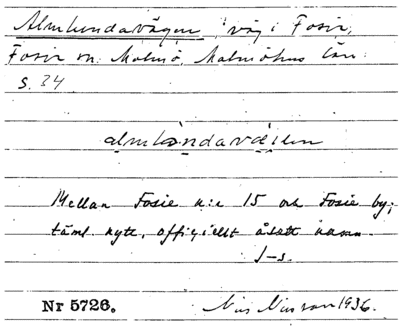 Almlundavägen, väg i Fosie,
Fosie sn. Malmö, Malmöhus län.
s. 34
Mellan Fosie n:e 15 och Fosie by;
täml. nytt, officiellt åsatt namn.
J-s.
Nr 5726. Nils Nilsson 1936.